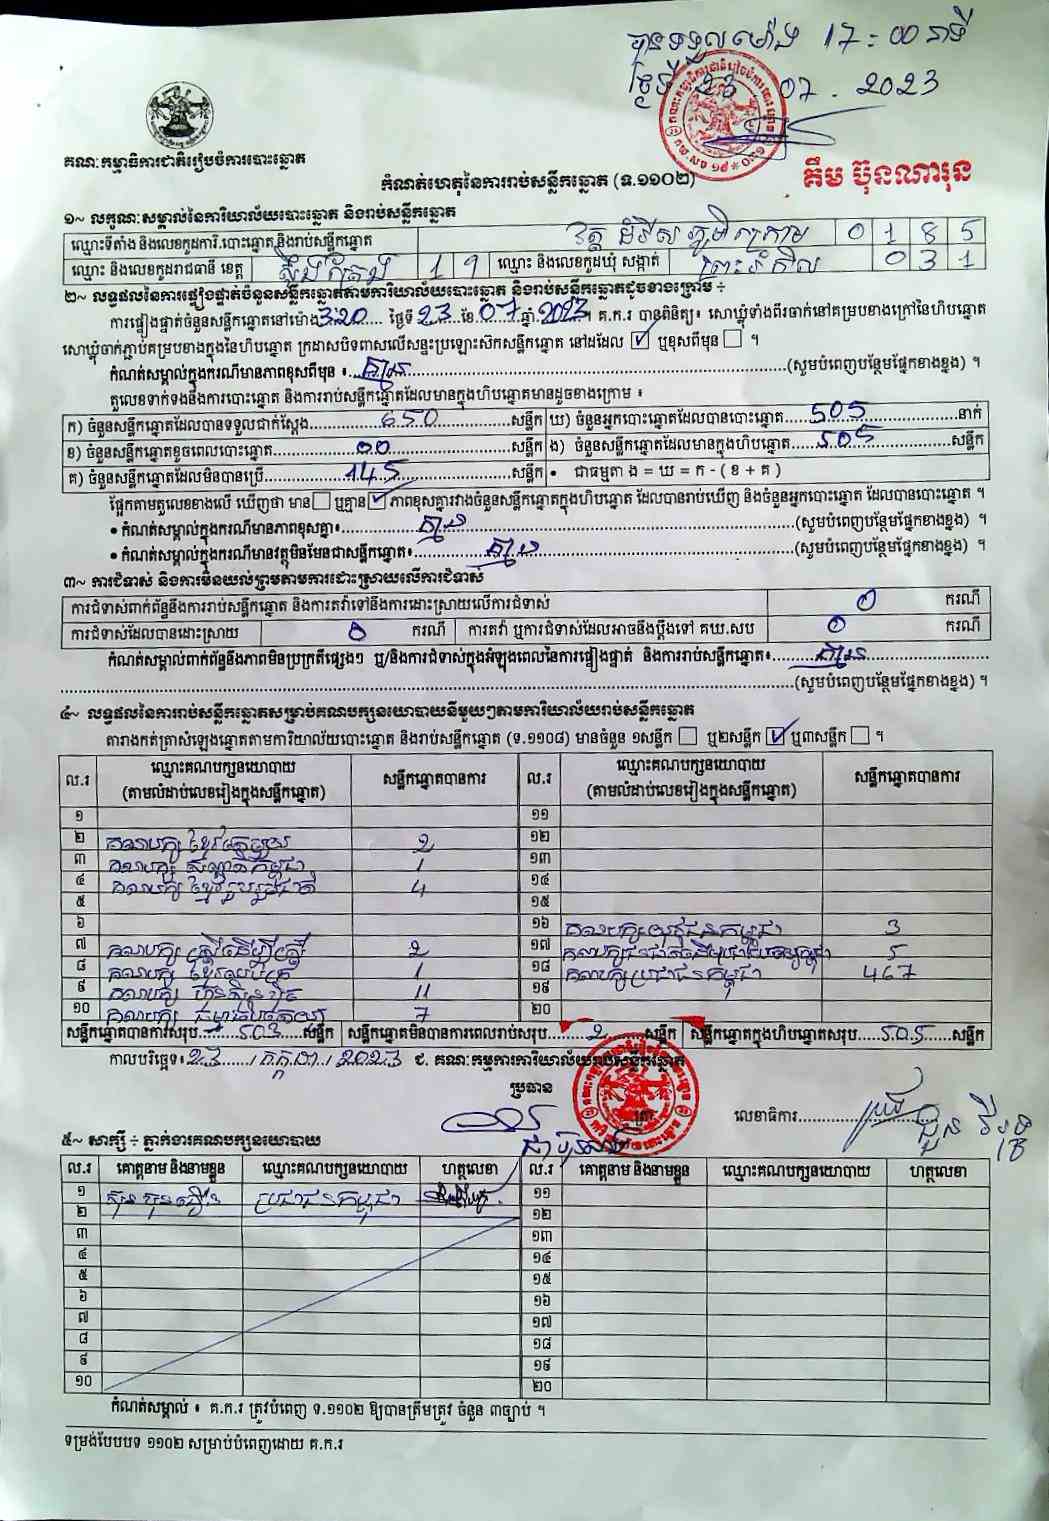 បានទទួលម៉ោង 17:00 នាទី
ថ្ងៃទី 23 07 . 2023
គណៈកម្មាធិការជាតិរៀបចំការបោះឆ្នោត
កំណត់ហេតុនៃការរាប់សន្លឹកឆ្នោត (ទ.១១០២)
គឹម ប៊ុនណារុន
១~ លក្ខណៈសម្គាល់នៃការិយាល័យបោះឆ្នោត និងរាប់សន្លឹកឆ្នោត
ឈ្មោះទីតាំង និងលេខកូដការិ.បោះឆ្នោត និងរាប់សន្លឹកឆ្នោត វត្ត 0 1 8 5
ឈ្មោះ និងលេខកូដរាជធានី ខេត្ត ស្ទឹងត្រែង 1 9 ឈ្មោះ និងលេខកូដឃុំ សង្កាត់ ព្រះរំកិល 0 3 1
២~ លទ្ធផលនៃការផ្ទៀងផ្ទាត់ចំនួនសន្លឹកឆ្នោតតាមការិយាល័យបោះឆ្នោត និងរាប់សន្លឹកឆ្នោតដូចខាងក្រោម ÷
ការផ្ទៀងផ្ទាត់ចំនួនសន្លឹកឆ្នោតនៅម៉ោង 3:20 ថ្ងៃទី 23 ខែ 07 ឆ្នាំ 2023 ។ គ.ក.រ បានពិនិត្យ៖ សោឃ្លុំទាំងពីរចាក់នៅគម្របខាងក្រៅនៃហិបឆ្នោត
សោឃ្លុំចាក់ភ្ជាប់គម្របខាងក្នុងនៃហិបឆ្នោត ក្រដាសបិទពាសលើសន្ទះប្រឡោះសឹកសន្លឹកឆ្នោត នៅដដែល ☑ ឬខុសពីមុន ☐ ។
កំណត់សម្គាល់ក្នុងករណីមានភាពខុសពីមុន ៖ គ្មាន (សូមបំពេញបន្ថែមផ្នែកខាងខ្នង) ។
តួលេខទាក់ទងនឹងការបោះឆ្នោត និងការរាប់សន្លឹកឆ្នោតដែលមានក្នុងហិបឆ្នោតមានដូចខាងក្រោម ៖
ក) ចំនួនសន្លឹកឆ្នោតដែលបានទទួលជាក់ស្តែង 650 សន្លឹក ឃ) ចំនួនអ្នកបោះឆ្នោតដែលបានបោះឆ្នោត 505 នាក់
ខ) ចំនួនសន្លឹកឆ្នោតខូចពេលបោះឆ្នោត 00 សន្លឹក ង) ចំនួនសន្លឹកឆ្នោតដែលមានក្នុងហិបឆ្នោត 505 សន្លឹក
គ) ចំនួនសន្លឹកឆ្នោតដែលមិនបានប្រើ 145 សន្លឹក • ជាធម្មតា ង = ឃ = ក - ( ខ + គ )
ផ្អែកតាមតួលេខខាងលើ ឃើញថា មាន ☐ ឬគ្មាន ☑ ភាពខុសគ្នារវាងចំនួនសន្លឹកឆ្នោតក្នុងហិបឆ្នោត ដែលបានរាប់ឃើញ និងចំនួនអ្នកបោះឆ្នោត ដែលបានបោះឆ្នោត ។
• កំណត់សម្គាល់ក្នុងករណីមានភាពខុសគ្នា៖ គ្មាន (សូមបំពេញបន្ថែមផ្នែកខាងខ្នង) ។
• កំណត់សម្គាល់ក្នុងករណីមានវត្ថុមិនមែនជាសន្លឹកឆ្នោត៖ គ្មាន (សូមបំពេញបន្ថែមផ្នែកខាងខ្នង) ។
៣~ ការជំទាស់ និងការមិនយល់ព្រមតាមការដោះស្រាយលើការជំទាស់
ការជំទាស់ពាក់ព័ន្ធនឹងការរាប់សន្លឹកឆ្នោត និងការតវ៉ាទៅនឹងការដោះស្រាយលើការជំទាស់ 0 ករណី
ការជំទាស់ដែលបានដោះស្រាយ 0 ករណី ការតវ៉ា ឬការជំទាស់ដែលអាចនឹងប្តឹងទៅ គឃ.សប 0 ករណី
កំណត់សម្គាល់ពាក់ព័ន្ធនឹងភាពមិនប្រក្រតីផ្សេងៗ ឬ/និងការជំទាស់ក្នុងអំឡុងពេលនៃការផ្ទៀងផ្ទាត់ និងការរាប់សន្លឹកឆ្នោត៖ គ្មាន
(សូមបំពេញបន្ថែមផ្នែកខាងខ្នង) ។
៤~ លទ្ធផលនៃការរាប់សន្លឹកឆ្នោតសម្រាប់គណបក្សនយោបាយនីមួយៗតាមការិយាល័យរាប់សន្លឹកឆ្នោត
តារាងកត់ត្រាសំឡេងឆ្នោតតាមការិយាល័យបោះឆ្នោត និងរាប់សន្លឹកឆ្នោត (ទ.១១០៨) មានចំនួន ១សន្លឹក ☐ ឬ២សន្លឹក ☑ ឬ៣សន្លឹក ☐ ។
ល.រ ឈ្មោះគណបក្សនយោបាយ (តាមលំដាប់លេខរៀងក្នុងសន្លឹកឆ្នោត) សន្លឹកឆ្នោតបានការ ល.រ ឈ្មោះគណបក្សនយោបាយ (តាមលំដាប់លេខរៀងក្នុងសន្លឹកឆ្នោត) សន្លឹកឆ្នោតបានការ
១ ១១
២ គណបក្ស ខ្មែរ 2 ១២
៣ គណបក្ស កម្ពុជា 1 ១៣
៤ គណបក្ស ខ្មែររួបរួមជាតិ 4 ១៤
៥ ១៥
៦ ១៦ គណបក្សយុវជនកម្ពុជា 3
៧ គណបក្ស ស្ត្រីដើម្បីស្ត្រី 2 ១៧ គណបក្ស 5
៨ គណបក្ស ខ្មែរ 1 ១៨ គណបក្សប្រជាជនកម្ពុជា 467
៩ គណបក្ស ហ្វ៊ុនស៊ិនប៉ិច 11 ១៩
១០ គណបក្ស 7 ២០
សន្លឹកឆ្នោតបានការសរុប 503 សន្លឹក សន្លឹកឆ្នោតមិនបានការពេលរាប់សរុប 2 សន្លឹក សន្លឹកឆ្នោតក្នុងហិបឆ្នោតសរុប 505 សន្លឹក
កាលបរិច្ឆេទ៖ 23 / កក្កដា / 2023 ជ. គណៈកម្មការការិយាល័យរាប់សន្លឹកឆ្នោត
ប្រធាន
លេខាធិការ
៥~ សាក្សី ÷ ភ្នាក់ងារគណបក្សនយោបាយ
ល.រ គោត្តនាម និងនាមខ្លួន ឈ្មោះគណបក្សនយោបាយ ហត្ថលេខា ល.រ គោត្តនាម និងនាមខ្លួន ឈ្មោះគណបក្សនយោបាយ ហត្ថលេខា
១ ប្រជាជនកម្ពុជា ១១
២ ១២
៣ ១៣
៤ ១៤
៥ ១៥
៦ ១៦
៧ ១៧
៨ ១៨
៩ ១៩
១០ ២០
កំណត់សម្គាល់ ៖ គ.ក.រ ត្រូវបំពេញ ទ.១១០២ ឱ្យបានត្រឹមត្រូវ ចំនួន ៣ច្បាប់ ។
ទម្រង់បែបបទ ១១០២ សម្រាប់បំពេញដោយ គ.ក.រ